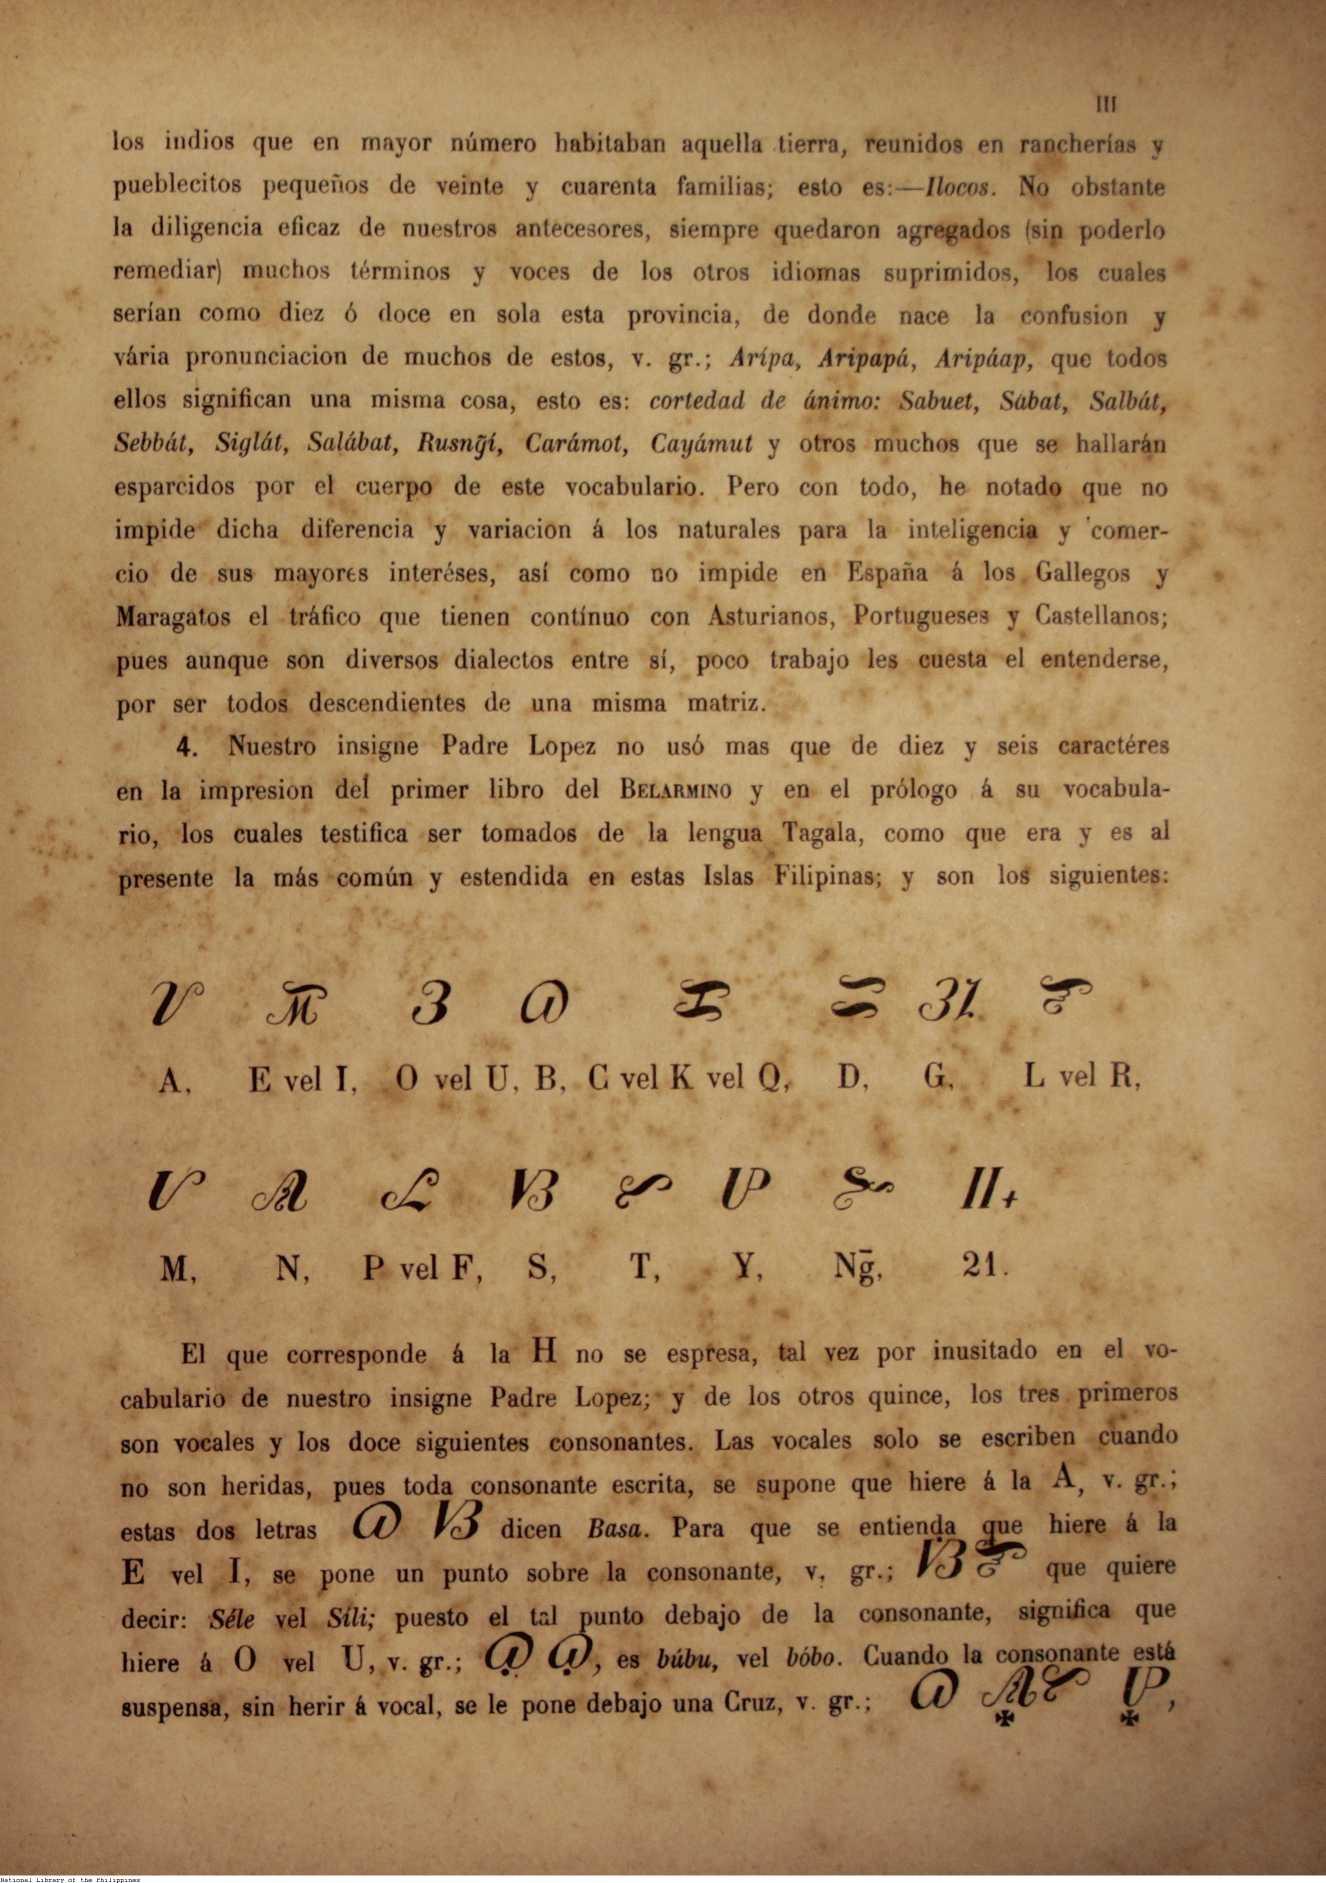 III
los indios que en mayor número habitaban aquella tierra, reunidos en rancherías y
pueblecitos pequeños de veinte y cuarenta familias; esto es:—Ilocos. No obstante
la diligencia eficaz de nuestros antecesores, siempre quedaron agregados (sin poderlo
remediar) muchos términos y voces de los otros idiomas suprimidos, los cuales
serían como diez ó doce en sola esta provincia, de donde nace la confusion y
vária pronunciacion de muchos de estos, v. gr.; Arípa, Aripapá, Aripáap, que todos
ellos significan una misma cosa, esto es: cortedad de ánimo: Sabuet, Sábat, Salbát,
Sebbát, Siglát, Salábat, Rusng̃í, Carámot, Cayámut y otros muchos que se hallarán
esparcidos por el cuerpo de este vocabulario. Pero con todo, he notado que no
impide dicha diferencia y variacion á los naturales para la inteligencia y comer-
cio de sus mayores interéses, así como no impide en España á los Gallegos y
Maragatos el tráfico que tienen contínuo con Asturianos, Portugueses y Castellanos;
pues aunque son diversos dialectos entre sí, poco trabajo les cuesta el entenderse,
por ser todos descendientes de una misma matriz.
4. Nuestro insigne Padre Lopez no usó mas que de diez y seis caractéres
en la impresion del primer libro del BELARMINO y en el prólogo á su vocabula-
rio, los cuales testifica ser tomados de la lengua Tagala, como que era y es al
presente la más común y estendida en estas Islas Filipinas; y son los siguientes:
ᜀ ᜁ ᜂ ᜊ ᜃ ᜇ ᜄ ᜎ
A, E vel I, O vel U, B, C vel K vel Q, D, G, L vel R,
ᜋ ᜈ ᜉ ᜐ ᜆ ᜌ ᜅ
M, N, P vel F, S, T, Y, Ng̃, 21.
El que corresponde á la H no se espresa, tal vez por inusitado en el vo-
cabulario de nuestro insigne Padre Lopez; y de los otros quince, los tres primeros
son vocales y los doce siguientes consonantes. Las vocales solo se escriben cuando
no son heridas, pues toda consonante escrita, se supone que hiere á la A, v. gr.;
estas dos letras ᜊ ᜐ dicen Basa. Para que se entienda que hiere á la
E vel I, se pone un punto sobre la consonante, v. gr.; ᜐᜒ ᜎᜒ que quiere
decir: Séle vel Síli; puesto el tal punto debajo de la consonante, significa que
hiere á O vel U, v. gr.; ᜊᜓ ᜊᜓ, es búbu, vel bóbo. Cuando la consonante está
suspensa, sin herir á vocal, se le pone debajo una Cruz, v. gr.; ᜊ ᜈ᜔ ᜆ ᜌ᜔,
National Library of the Philippines